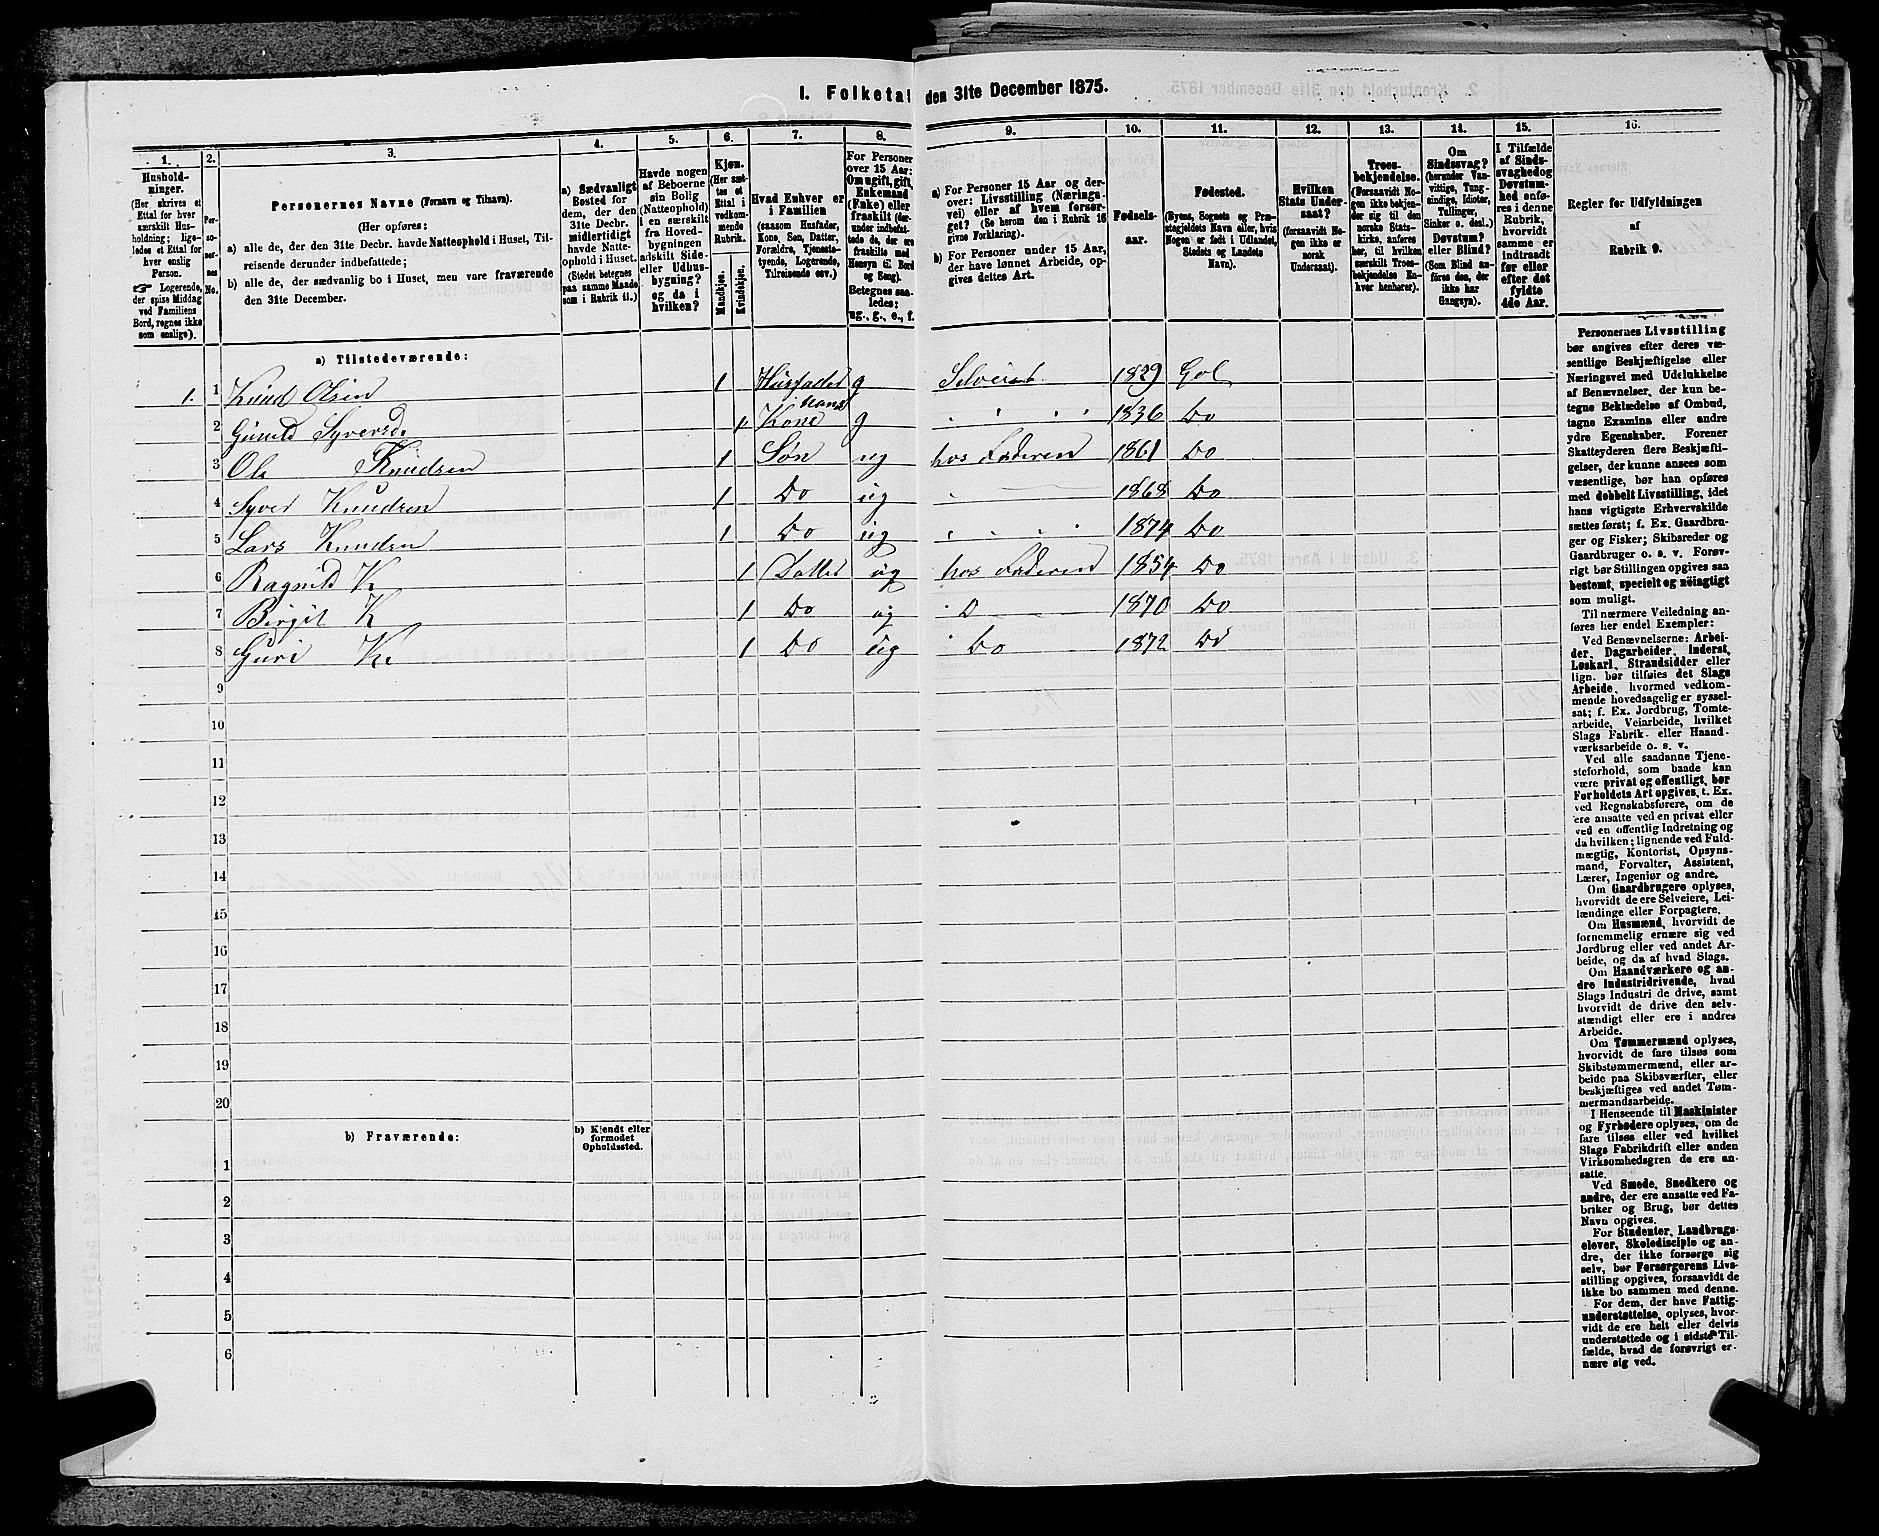 I. Folketal den 31te December 1875.
1. 2. 3. 4. 5. 6. 7. 8. 9. 10. 11. 12. 13. 14. 15. 16.
Hushold-
ninger.
(Her skrives et
Ettal for hver
særskilt Hus-
holdning; lige-
ledes et Ettal for
hver enslig
Person.
☞ Logerende,
der spise Middag
ved Familiens
Bord, regnes ikke
som enslige).
Per-
so-
ner-
nes
No.
Personernes Navne (Fornavn og Tilnavn).
(Her opføres:
a) alle de, der den 31te Decbr. havde Natteophold i Huset, Til-
reisende derunder indbefattede;
b) alle de, der sædvanlig bo i Huset, men vare fraværende
den 31te December.
a) Sædvanligt
Bosted for
dem, der den
31te Decbr.
midlertidigt
havde Natte-
ophold i Huset.
(Stedet betegnes
paa samme Maade
som i Rubrik 11.)
Havde nogen
af Beboerne
sin Bolig
(Natteophold)
i en særskilt
fra Hoved-
bygningen
adskilt Side-
eller Udhus-
bygning?
og da i
hvilken?
Kjøn.
(Her sæt-
tes et
Ettal i
vedkom-
mende
Rubrik.
Mandkjøn.
Kvindekjøn.
Hvad Enhver er
i Familien
(saasom Husfader,
Kone, Søn, Datter,
Forældre, Tjeneste-
tyende, Logerende,
Tilreisende osv.)
For Personer
over 15 Aar:
Om ugift, gift,
Enkemand
(Enke) eller
fraskilt (der-
under indbefat-
tede de, der ere
fraskilte med
Hensyn til Bord
og Seng).
Betegnes saa-
ledes:
ug., g., e., f.
a) For Personer 15 Aar og der-
over: Livsstilling (Nærings-
vei) eller af hvem forsør-
get? (Se herom den i Rubrik 16
givne Forklaring).
b) For Personer under 15 Aar,
der have lønnet Arbeide, op-
gives dettes Art.
Fødsels-
aar.
Fødested.
(Byens, Sognets og Præ-
stegjeldets Navn eller, hvis
Nogen er født i Udlandet,
Stedets og Landets
Navn).
Hvilken
Stats Under-
saat?
(forsaavidt No-
gen ikke er
norsk
Undersaat).
Troes-
bekjendelse.
(Forsaavidt No-
gen ikke bekjen-
der sig til den
norske Stats-
kirke, anføres
her, til hvilken
særskilt Troes-
bekjendelse En-
hver henhører).
Om
Sindssvag?
(herunder Van-
vittige, Tung-
sindige, Idioter,
Tullinger,
Sinker o. desl.).
Døvstum?
eller Blind?
(Som Blind an-
føres den, der
ikke har
Gangsyn).
I Tilfælde
af Sinds-
svaghed og
Døvstum-
hed anfø-
res i denne
Rubrik,
hvorvidt
samme er
indtraadt
før eller
efter det
fyldte
4de Aar.
Regler for Udfyldningen
af
Rubrik 9.
a) Tilstedeværende:
1. 1 Knud Olsen 1 Husfader g Selveier 1829 Gol
2 Gunild Syversd. 1 hans Kone g " " " " 1836 Do
3 Ole Knudsen 1 Søn ug hos Faderen 1861 Do
4 Syver Knudsen 1 Do ug " 1868 Do
5 Lars Knudsen 1 Do ug " " " " 1874 Do
6 Ragnild K 1 Datter ug hos Faderen 1854 Do
7 Birgit K 1 Do ug " D 1870 Do
8 Guri K. 1 Do ug " Do 1872 Do
9
10
11
12
13
14
15
16
17
18
19
20
b) Fraværende:
b) Kjendt eller
formodet
Opholdssted.
1
2
3
4
5
6
Personernes Livsstilling
bør angives efter deres væ-
sentlige Beskjæftigelse eller
Næringsvei med Udelukkelse
af Benævnelser, der kun be-
tegne Beklædelse af Ombud,
tagne Examina eller andre
ydre Egenskaber. Forener
Skatteyderen flere Beskjæfti-
gelser, der kunne ansees som
væsentlige, bør han opføres
med dobbelt Livsstilling, idet
hans vigtigste Erhvervskilde
sættes først; f. Ex. Gaardbru-
ger og Fisker; Skibsreder og
Gaardbruger o. s. v. Forøv-
rigt bør Stillingen opgives saa
bestemt, specielt og nøiagtigt
som muligt.
Til nærmere Veiledning an-
føres her endel Exempler:
Ved Benævnelserne: Arbei-
der, Dagarbeider, Inderst,
Løskarl, Strandsidder eller
lign. bør tilføies det Slags
Arbeide, hvormed vedkom-
mende hovedsagelig er syssel-
sat; f. Ex. Jordbrug, Tomte-
arbeide, Veiarbeide, hvilket
Slags Fabrik- eller Haand-
værksarbeide o. s. v.
Ved alle saadanne Tjene-
steforhold, som baade kan
være privat og offentligt, bør
Forholdets Art opgives, f. Ex.
ved Regnskabsførere, om de
ere ansatte ved en privat eller
ved en offentlig Indretning og
da hvilken; lignende ved Fuld-
mægtig, Kontorist, Opsyns-
mand, Forvalter, Assistent,
Lærer, Ingeniør og andre.
Om Gaardbrugere oplyses,
hvorvidt de ere Selveiere, Lei-
lændinge eller Forpagtere.
Om Husmænd, hvorvidt de
fornemmelig ernære sig ved
Jordbrug eller ved andet Ar-
beide, og da af hvad Slags.
Om Haandværkere og an-
dre Industridrivende, hvad
Slags Industri de drive, samt
hvorvidt de drive den selv-
stændigt eller ere i andres
Arbeide.
Om Tømmermænd oplyses,
hvorvidt de fare tilsøs som
Skibstømmermænd, eller ar-
beide paa Skibsværfter, eller
beskjæftiges ved andet Tøm-
mermandsarbeide.
I Henseende til Maskinister
og Fyrbødere oplyses, om de
fare tilsøs eller ved hvilket
Slags Fabrikdrift eller anden
Virksomhedsgren de ere an-
satte.
Ved Smede, Snedkere og
andre, der ere ansatte ved Fa-
briker og Brug, bør dettes
Navn opgives.
For Studenter, Landbrugs-
elever, Skoledisciple og an-
dre, der ikke forsørge sig
selv, bør Forsørgerens Livs-
stilling opgives, forsaavidt de
ikke bo sammen med denne.
For dem, der have Fattig-
understøttelse, oplyses, hvor-
vidt de ere helt eller delvis
understøttede og i sidste Til-
fælde, hvad de forøvrigt er-
nære sig ved.